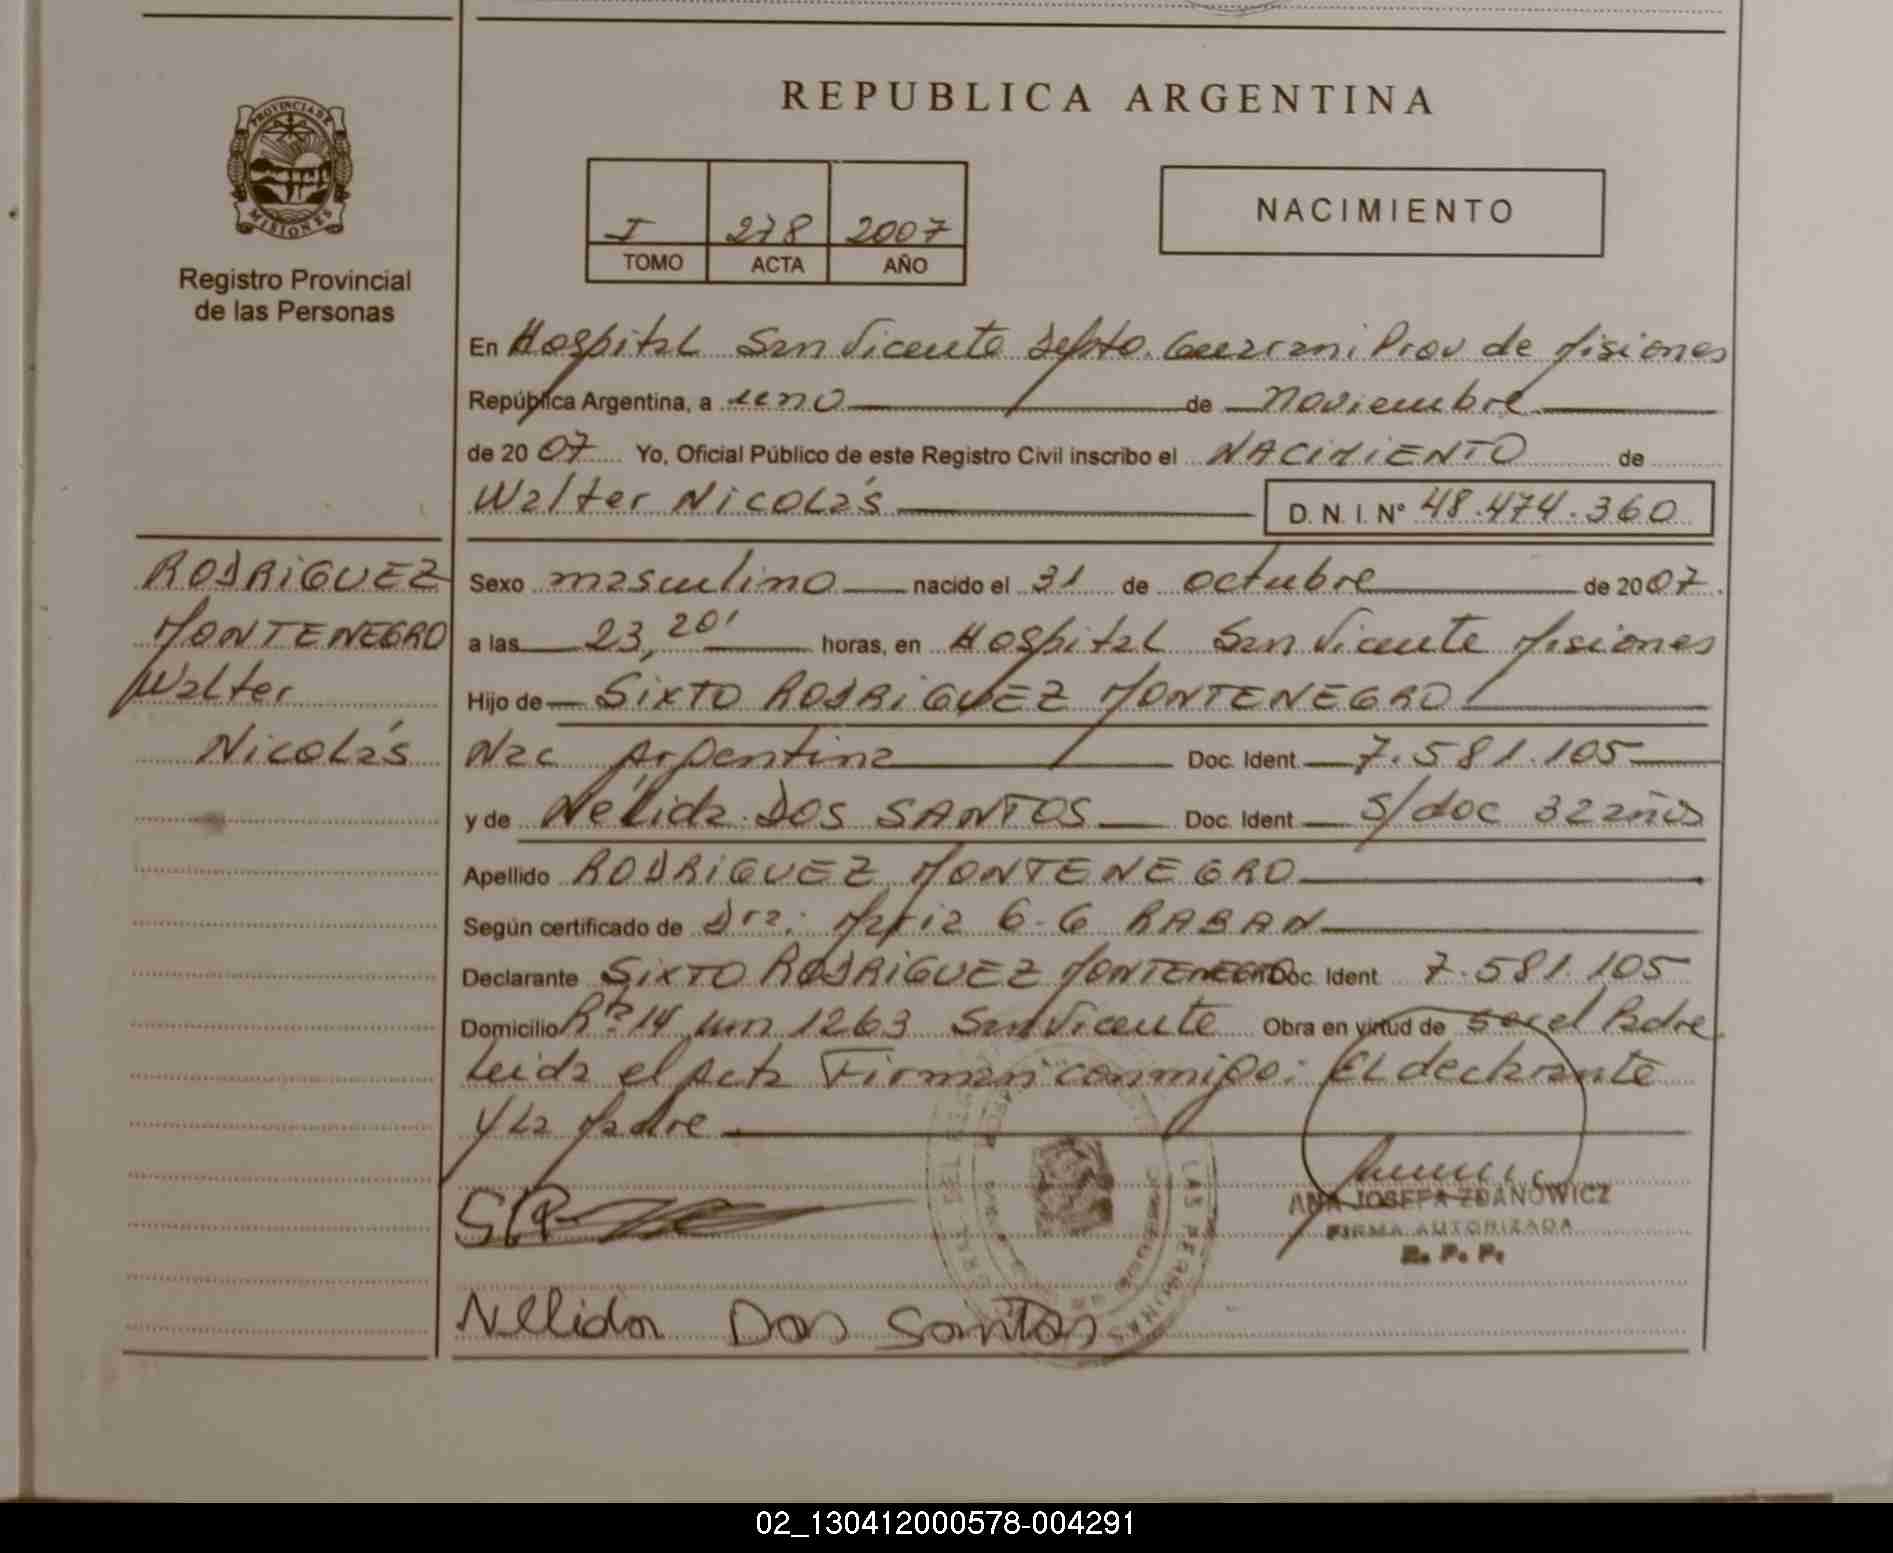 REPUBLICA ARGENTINA
PROVINCIA DE
MISIONES
Registro Provincial
de las Personas
I 278 2007
TOMO ACTA AÑO
NACIMIENTO
En Hospital San Vicente Depto. Guarani Prov de Misiones
República Argentina, a uno de noviembre
de 2007 Yo, Oficial Público de este Registro Civil inscribo el NACIMIENTO de
Walter Nicolás D. N. I. N° 48.474.360
RODRIGUEZ
MONTENEGRO
Walter
Nicolás
Sexo masculino nacido el 31 de octubre de 2007.
a las 23,20' horas, en Hospital San Vicente Misiones
Hijo de SIXTO RODRIGUEZ MONTENEGRO
Nac Argentina Doc. Ident. 7.581.105
y de Nélida DOS SANTOS Doc. Ident. S/doc 32 años
Apellido RODRIGUEZ MONTENEGRO
Según certificado de Dra: Maria G. G RABAN
Declarante SIXTO RODRIGUEZ MONTENEGRO Doc. Ident. 7.581.105
Domicilio R° 14 km 1263 San Vicente Obra en virtud de ser el Padre
Leida el Acta Firman conmigo: El declarante
y La Madre
ANA JOSEFA ZDANOWICZ
FIRMA AUTORIZADA
R. P. P.
LAS PERSONAS
Nellida Dos Santos
02_130412000578-004291